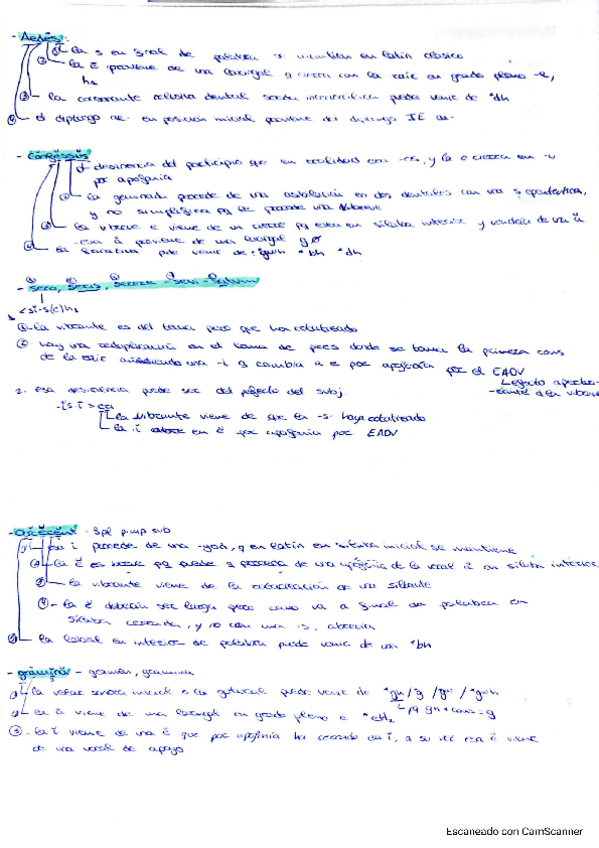 - Aedēs
① la s en final de palabra se mantien en latín clásico
② la ē proviene de una laringal q cierra con la raíz en grado pleno -e,
h₁
③ la consonante oclusiva dental sonora intervocálica puede venir de *dh
④ el diptongo ae- en posición inicial proviene del diptongo IE ai-
- Confessus
① desinencia del participio que en realidad con -os, y la o cierra en -u
por apofonía
② la geminada procede de una asibilación en dos dentales con una s epentética,
y no simplifica pq le precede una vocal breve
③ la vocal e viene de un cierre pq esta en sílaba interior y vendría de una ā
-esa ā proviene de una laringal y ∅
④ la fricativa pde venir de: *gwh *bh *dh
- Sero, Seris, Serere - Sevi - Satum
<si-s(e)h₁
① la vibrante es del tema pero que ha rotatizado
② hay una reduplicación en el tema de pres donde se toma la primera cons
de la raíz añadiendo una -i q cambia a e por apofonía por el EADV
Efecto apertu-
-rante de la vibrante
2. esa desinencia puede ser del pfecto del subj.
-is i > er
la vibrante viene de que la -s- haya rotatizado
la i abre en ĕ por apofonía por EADV
- 3pl pimp sub
① esa i procede de una -yod, q en latín en sílaba inicial se mantiene
② la ĕ es breve pq puede q proceda de una apofonía de la vocal ĭ en sílaba interior
③ la vibrante viene de la rotatización de una silbante
④ la ĕ debería ser larga pero como va a final de palabra en
sílaba cerrada, y no con una -s, abrevia
⑤ la labial en interior de palabra puede venir de una *bh
- grāmina - gramen, graminis
① la velar sonora inicial o la gutural puede venir de *gh/g/gw/*gwh
pq gh + cons = g
② la ā viene de una laringal en grado pleno e *eH₂
③ la ĭ viene de una ĕ que por apofonía ha cerrado en i, a su vez esa ĕ viene
de una vocal de apoyo
Escaneado con CamScanner